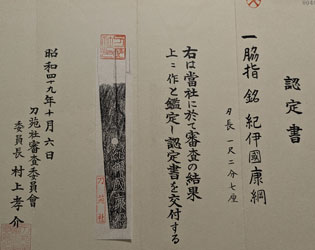 認定書
一脇指 銘 紀伊國康綱
刃長 一尺二分七厘
右は當社に於て審査の結果
上々作と鑑定し認定書を交付する
昭和四十九年十月六日
刀苑社審査委員會
委員長 村上孝介